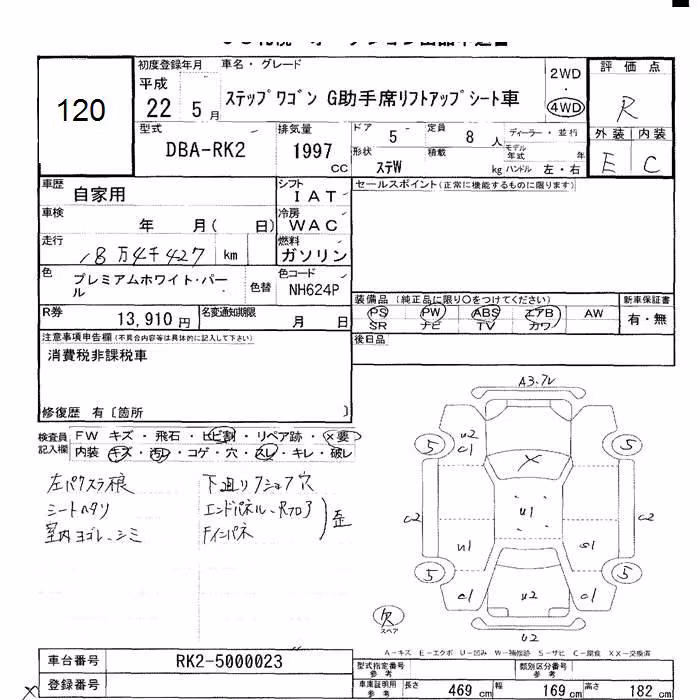 120
初度登録年月 車名・グレード
平成
22 5 月
ステップワゴン G助手席リフトアップシート車
2WD
・
4WD
評価点
R
外装 内装
E C
型式
DBA-RK2
排気量
1997
CC
ドア 5 定員 8 人
形状 ステW 積載 kg
ディーラー・並行
モデル年式 年
ハンドル 左・右
車歴 自家用
シフト I A T
車検 年 月( 日)
冷房 W A C
走行 18万4千427 km
燃料 ガソリン
色 プレミアムホワイト・パール
色替
色コード NH624P
R券 13,910 円
名変通知期限 月 日
セールスポイント(正常に機能するものに限ります)
装備品 (純正品に限り○をつけてください)
PS PW ABS エアB AW
SR ナビ TV カワ
新車保証書
有・無
後日品
注意事項申告欄(不具合内容等は具体的に記入して下さい)
消費税非課税車
修復歴 有〔箇所 〕
検査員記入欄
FW キズ・飛石・ヒビ割・リペア跡・×要
内装 キズ・汚レ・コゲ・穴・スレ・キレ・破レ
シートヘタリ
室内ヨゴレ、シミ
エンドパネル、Rフロア
歪
A3.7V
5 5
U2
C1
X
C2 U1 C2
U1 S1
5 5
C1 U2 C1
U2
欠
スペア
A-キズ E-エクボ U-凹み W-補修跡 S-サビ C-腐食 XX-交換済
車台番号 RK2-5000023
登録番号
型式指定番号
参考
類別区分番号
参考
車庫証明用
参考
長さ 469 cm 幅 169 cm 高さ 182 cm